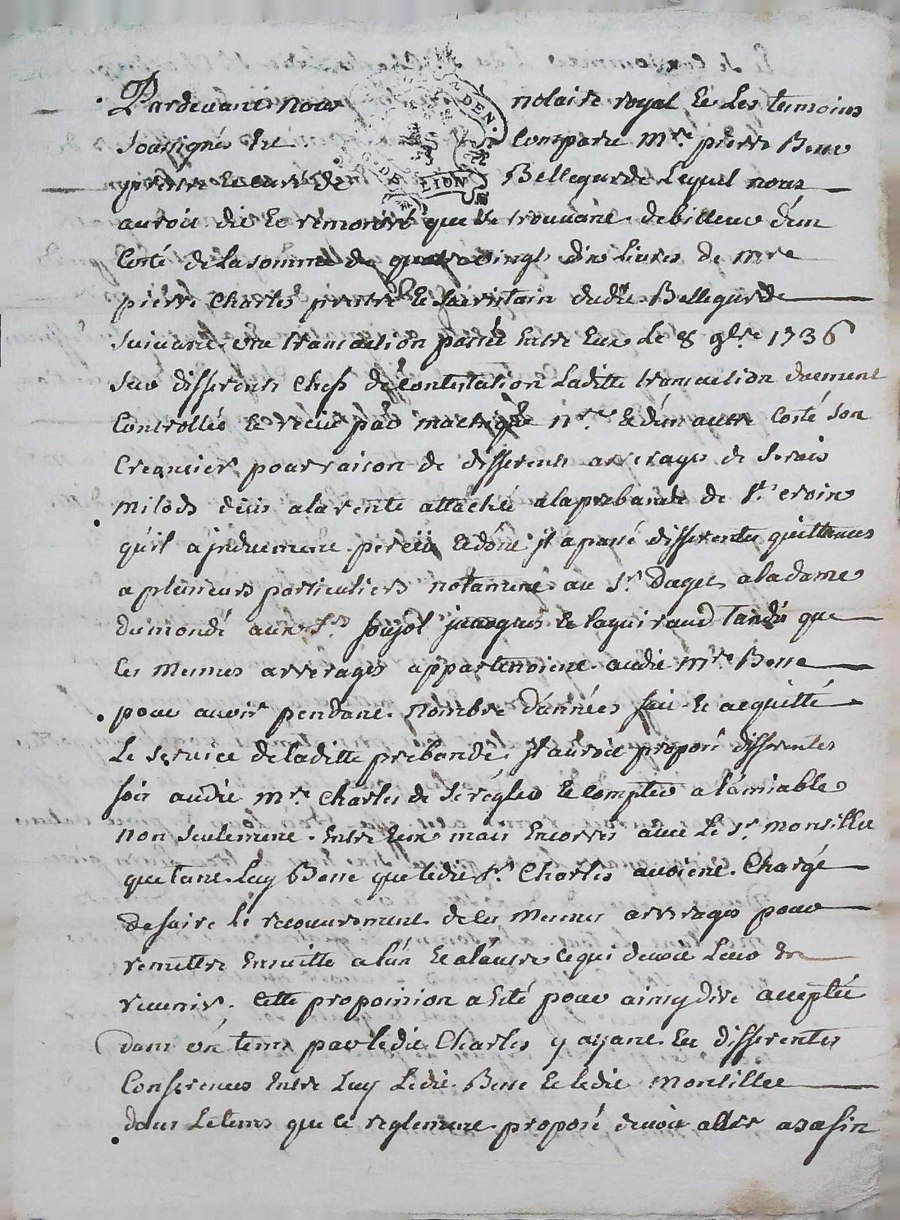 Pardevant Nous notaire royal et les temoins
soussignés Est Comparu Mre. pierre Bene
prettre et curé de Bellegarde Lequel nous
auroit dit et remontré que se trouvant debiteur d'un
Coté de la somme de quatre vingt dix Livres de Mre
pierre Charles prettre et sacristain dudit Bellegarde
suivant une transaction passée Entre Eux Le 8 9bre 1736
sur differents chefs de Contestation Laditte transaction duement
Controllée et recue par no.re et d'un autre Coté son
Creancier pour raison de differents arrerages de
deus a la rente attaché a la prebande de St.
qu'il a induement perceu et dont il a passé differentes quittances
a plusieurs particuliers notamment au Sr. Daget a la dame
dumondé aux Srs. soujol jacques et laguiraud Tandis que
les Memes arrerages appartenoient audit Mre. Bene
pour avoir pendant nombre d'années fait et acquitté
Le service de laditte prebande, Il auroit proposé differentes
fois audit Mre. Charles de se regler et compter a l'amiable
non seulement Entre Eux mais Encorres avec Le Sr. Monsillet
que tant Luy Bene que ledit Sr. Charles avoient Chargé
de faire le recouvrement de les Memes arrerages pour
remettre Ensuitte a l'un et a l'autre ce qui devoit Leur En
revenir. Cette proposition a été pour ainsy dire acceptée
dans un tems par ledit Charles y ayant Eu differentes
Conferences Entre Luy Ledit Bene et ledit Monsillet
dans Le tems que ce reglement proposé devoit aller a sa fin
DEN.
LION